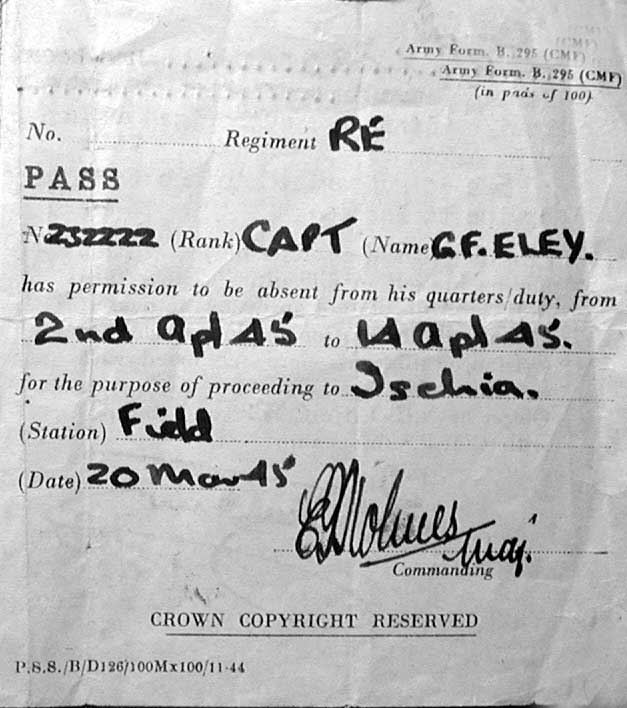 Army Form. B. 295 (CMF)
Army Form. B. 295 (CMF)
(in pads of 100)
No. Regiment RE
PASS
No 232222 (Rank) CAPT (Name) G.F. ELEY.
has permission to be absent from his quarters/duty, from
2nd apl 45 to 14 apl 45.
for the purpose of proceeding to Ischia.
(Station) Field
(Date) 20 Mar 45
Holmes Maj.
Commanding
CROWN COPYRIGHT RESERVED
P.S.S./B/D126/100Mx100/11-44